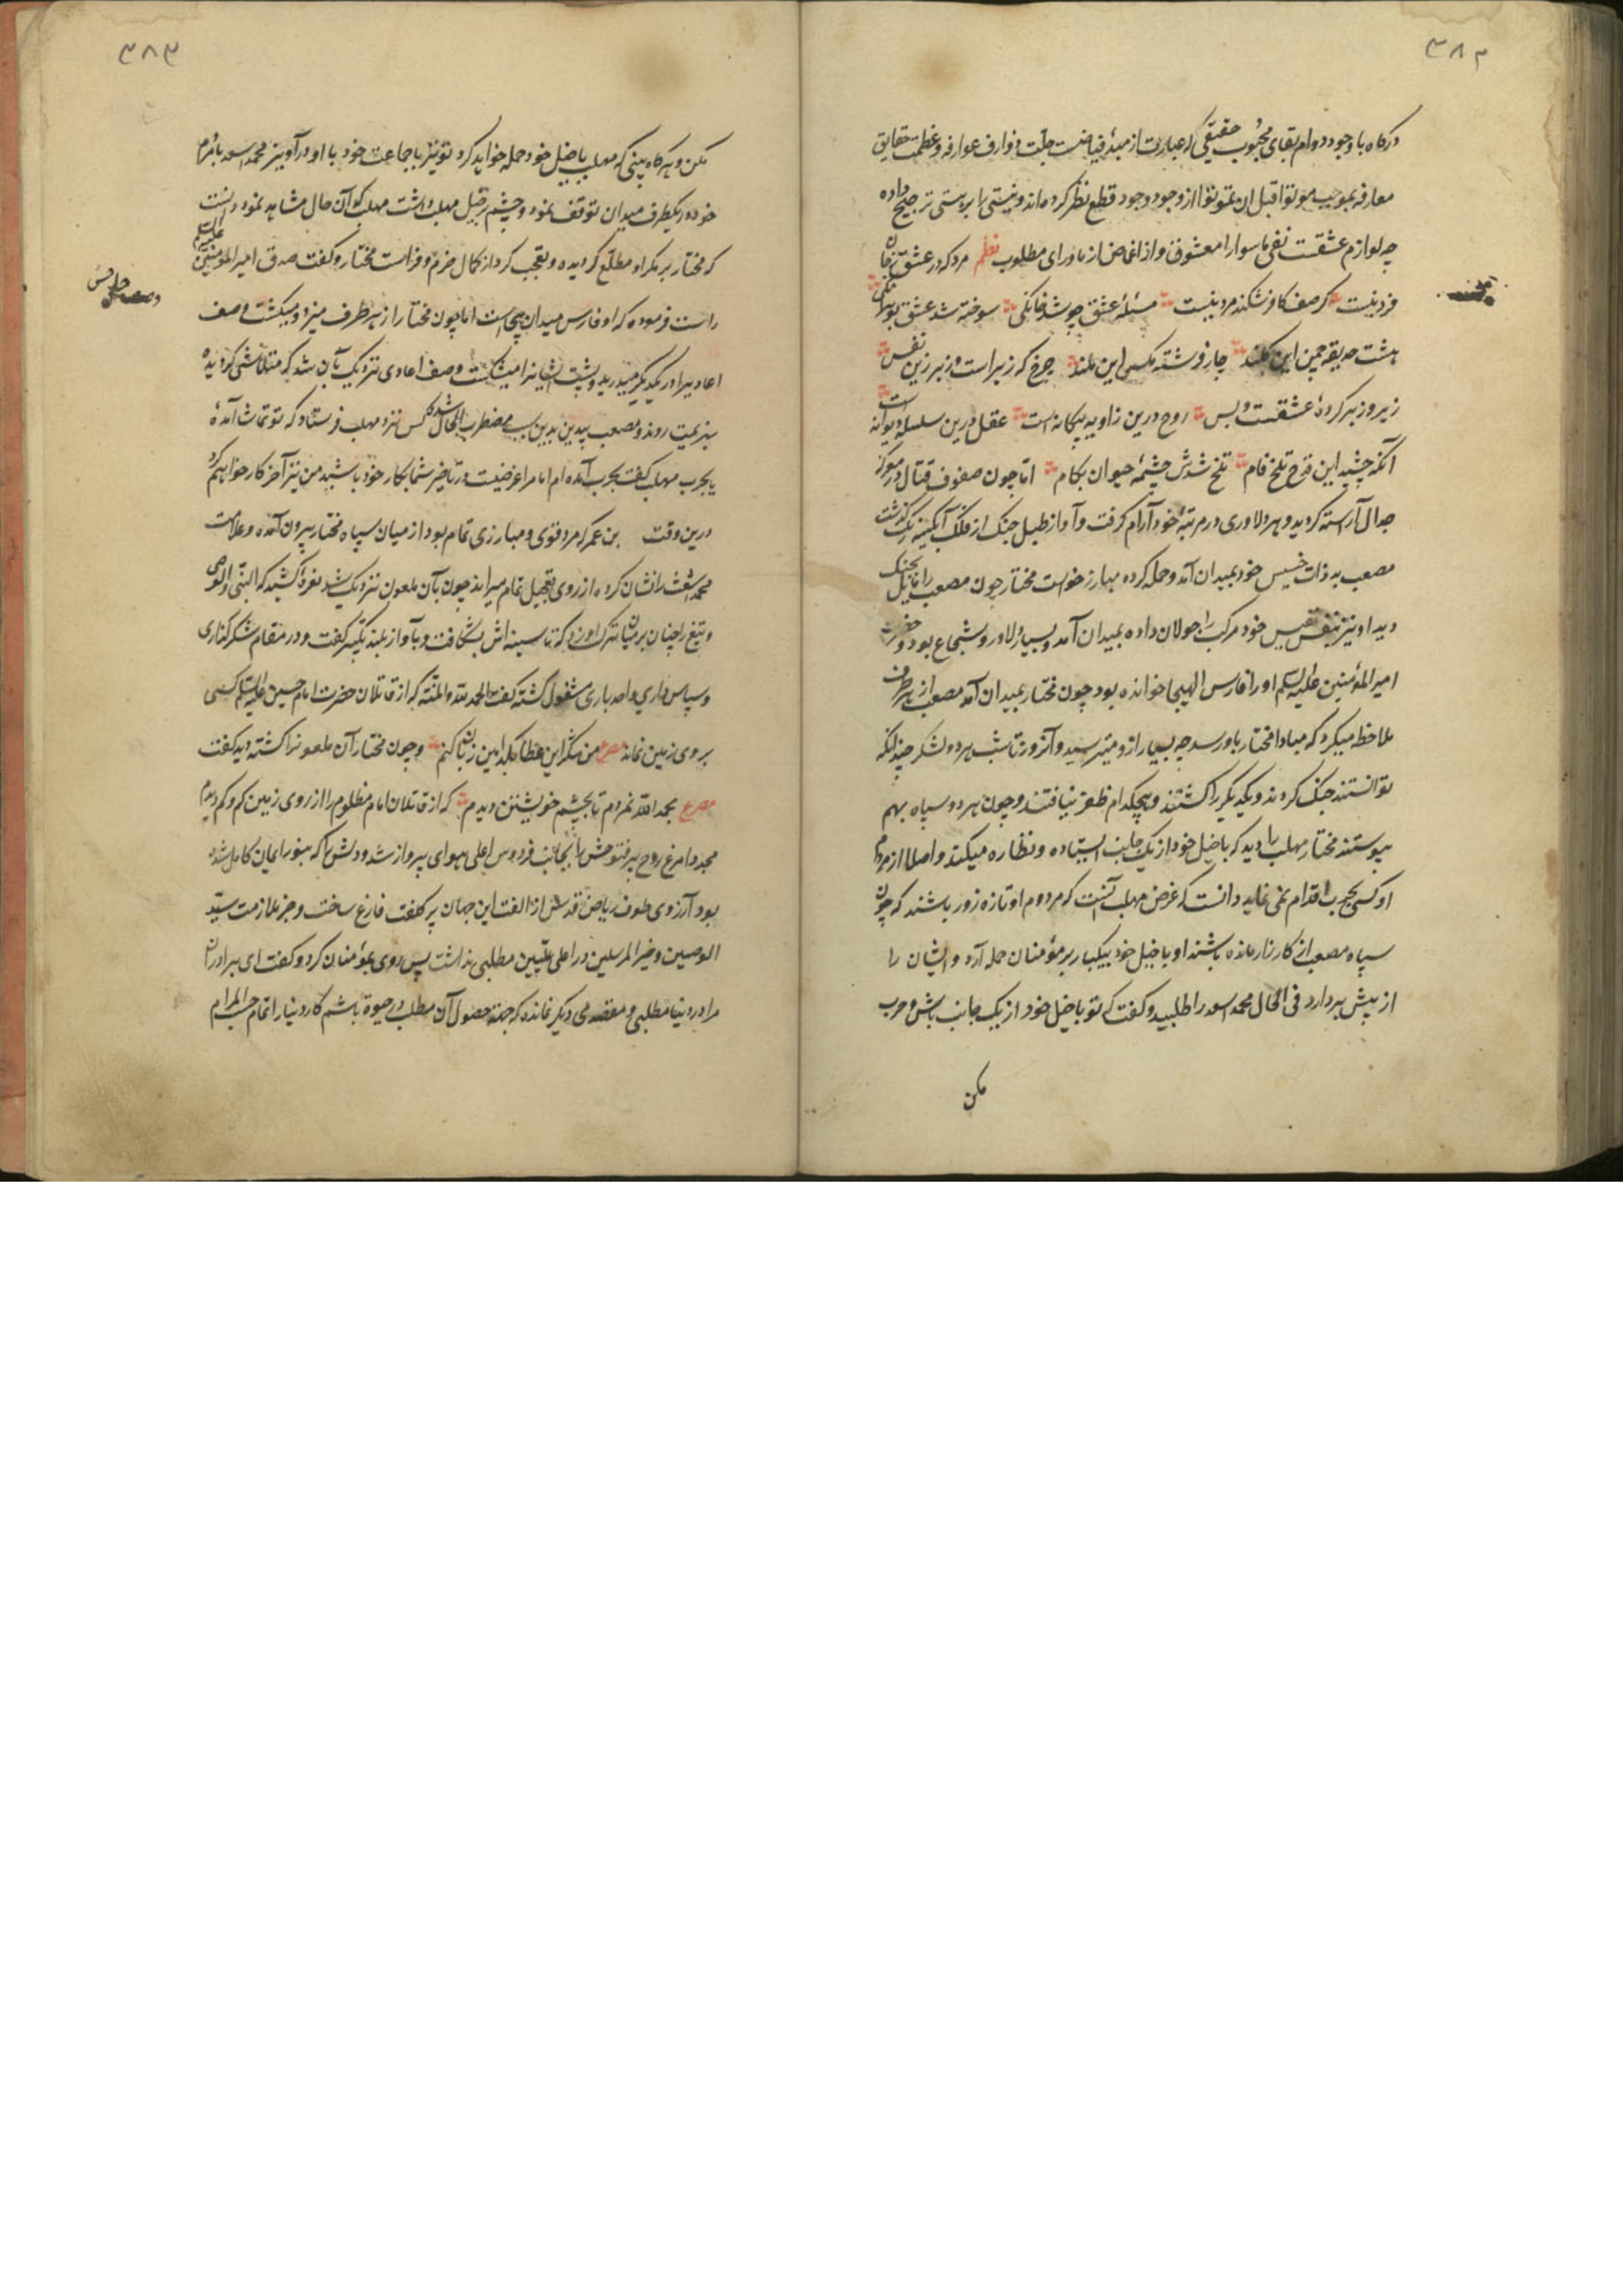 ۳۸۲
درکاه باوجود دوام بقای محبوب حقیقی که عبارت از مبدء فیاضست جلت ذوارف عوارفه وعظمت حقایق
معارفه بموجب موتوا قبل ان تموتوا از وجود وجود قطع نظر کرده اند ونیستی را بر هستی ترجیح داده
چه لوازم عشقست نفی ماسوا را معشوق واز اغماض از ماورای مطلوب نظم مرد که در عشق زجان
فرد نیست کر صف کافر شکند مرد نیست مسئله عشق چو شد خانکی سوخته شد عشق
هشت حدیقه چمن این کلند چار فرشته مکس این ملند چرخ که زیر است وزبر زین نفس
زیر وزبر کرده عشقست وبس روح درین زاویه پیکانه است عقل درین سلسله دیوانه است
آنکه چشید این قدح تلخ فام تلخ شدش چشمهٔ حیوان بکام اما چون صفوف قتال در معرکه
جدال آراسته کردید وهر دلاوری در مرتبهٔ خود آرام کرفت وآواز طبل جنک از فلک آبکینه رنک کذشت
مصعب به ذات خسیس خود بمیدان آمد وحمله کرده مبارز خواست مختار چون مصعب را مایل بجنک
دید او نیز بنفس نفیس خود مرکب را جولان داده بمیدان آمد وبسیار دلاور وشجاع بود وحضرت
امیر المؤمنین علیه السلم او را فارس الهیجا خوانده بود چون مختار بمیدان آمد مصعب از هر طرف
ملاحظه میکرد که مبادا مختار باو رسد چه بسیار ازو میترسید وآنروز تا شب هر دو لشکر چندانکه
توانستند جنک کردند ویکدیکر را کشتند وهیچکدام ظفر نیافتند وچون هر دو سپاه بهم
پیوستند مختار مهلب را دید که با خیل خود از یک جانب ایستاده ونظاره میکند واصلا از مردم
او کسی بحرب اقدام نمی نماید دانست که غرض مهلب آنست که مردوم او تازه زور باشند که چون
سپاه مصعب از کارزار مانده باشند او با خیل خود بیکبار بر مؤمنان حمله آرد وایشان را
از پیش بردارد فی الحال محمد اسعد را طلبید وکفت که تو با خیل خود از یک جانب باش وحرب
مکن
۳۸۳
مکن وهرکاه بینی که مهلب با خیل خود حمله خواهد کرد تو نیز با جماعت خود با او درآویز محمد اسعد با مردم
خود در یکطرف میدان توقف نمود وچشم بر خیل مهلب داشت مهلب کو آن حال مشاهد نمود دانست
که مختار بر مکر او مطلع کردیده وتعجب کرد از کمال حزم وفراست مختار وکفت صدق امیر المؤمنین علیه السلم
راست فرموده که او فارس میدان هیجاست اما چون مختار از هر طرف میزد ومیکشت وصف
اعادیرا در یکدیکر میدرید وپشت ایشانرا میشکست وصف اعادی نزدیک بآن شد که متلاشی کردیده
بهزیمت روند ومصعب بیدین بدین سبب مضطرب الحال شد کس نزد مهلب فرستاد که تو بتماشا آمدهٔ
یا بحرب مهلب کفت بحرب آمده ام اما مرا غرضیست در تاخیر شما بکار خود باشید من نیز آخر کار خواهم کرد
درین وقت بن عمر که مرد قوی ومبارزی تمام بود از میان سپاه مختار بیرون آمده وعلامت
محمد اشعث را نشان کرده از روی تعجیل تمام میراند چون بآن ملعون نزدیک شد نعرهٔ کشید که النبی والوصی
وتیغ را چنان بر میان ترک او زد که تا سینه اش بشکافت وبآواز بلند تکبیر کفت ودر مقام شکرکذاری
وسپاس داری واحد باری مشغول کشته کفت الحمد لله والمنه که از قاتلان حضرت امام حسین علیه السلم کسی
بر روی زمین نماند مصرع من شکر این عطا بکدامین زبان کنم وچون مختار آن ملعونرا کشته دید کفت
مصرع بحمد الله نمردم تا بچشم خویشتن دیدم که از قاتلان امام مظلوم را از روی زمین کم وکم دیدم
مجددا مرغ روح پرفتوحش را بجانب فردوس اعلی هوای پرواز شد ودلش را که بنور ایمان کامل شده
بود آرزوی طوف ریاض قدس از الفت این جهان پر کلفت فارغ ساخت وجز ملازمت سید
الوصیین وخیر المرسلین در اعلی علیین مطلبی نداشت پس روی بمؤمنان کرد وکفت ای برادران
مرا در دنیا مطلبی ومقصدی دیکر نمانده که جهة حصول آن مطلب در حیوة باشم کار دنیا را تمام